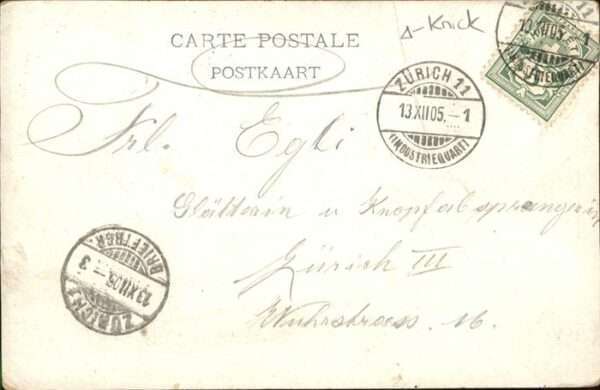 Δ-Knick
CARTE POSTALE
POSTKAART
ZÜRICH 11
13.XII.05.–1
(INDUSTRIEQUART)
13.XII.05.–1
(INDUSTRIEQUART)
Frl. Egli
Glätterin u Knopfabsprengerin
Zürich III
Wuhrstrass. 16.
ZÜRICH 1
13.XII.05.–3
BRIEFTRÄGER